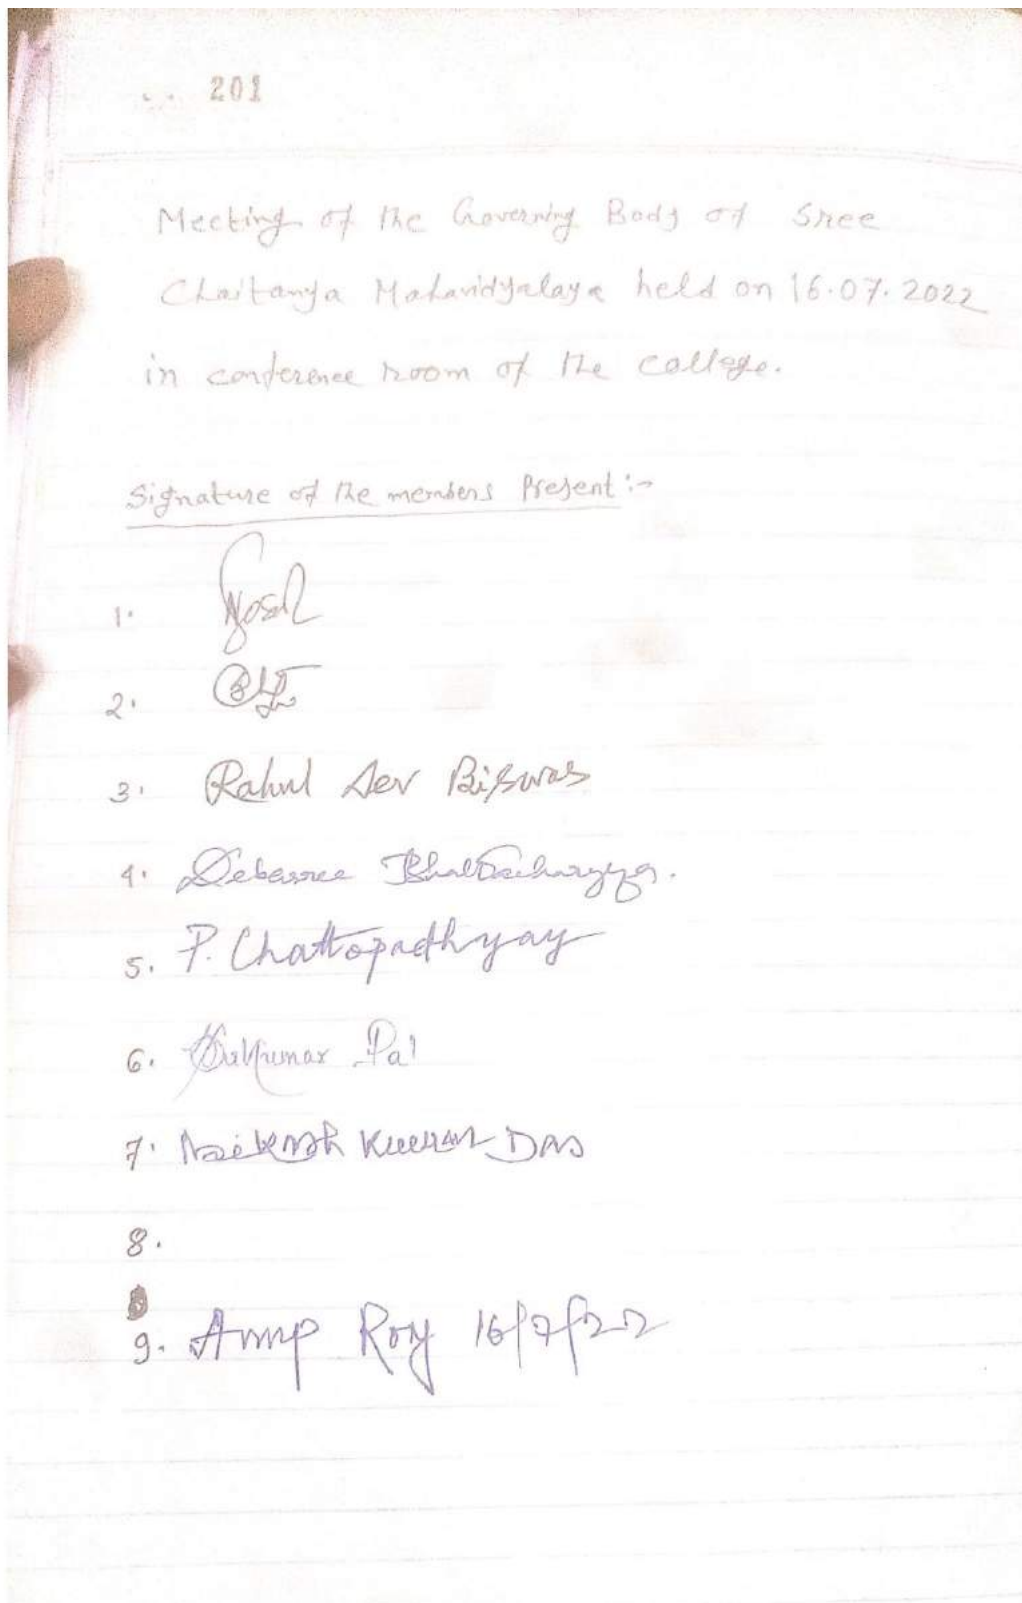 201
Meeting of the Governing Body of Sree
Chaitanya Mahavidyalaya held on 16.07.2022
in conference room of the college.
Signature of the members Present :-
1.
2.
3. Rahul Dev Biswas
4. Debasree Bhattacharyya.
5. P. Chattopadhyay
6. Sukumar Pal
7. Kumar Das
8.
9. Anup Roy 16/7/22